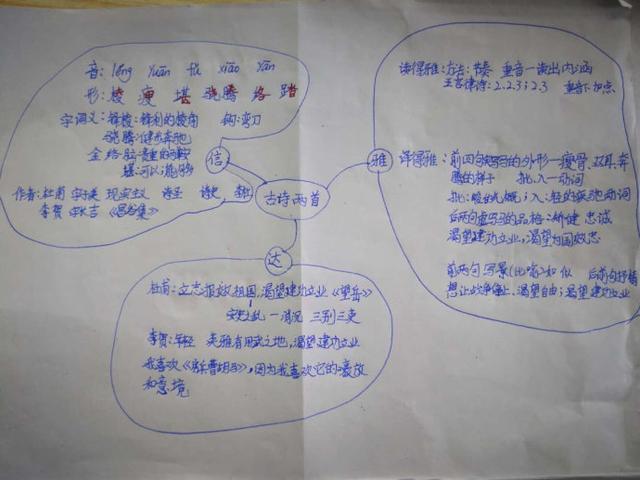 音: léng yuān kān xiāo yān
形: 棱 瘦 堪 骁腾 络 踏
字词义: 锋棱: 锋利的棱角 钩: 弯刀
骁腾: 健步奔驰
金络脑: 贵重的马鞍
堪: 可以, 能够
作者: 杜甫 字子美 现实主义 诗圣 诗史
李贺 字长吉 《昌谷集》
信
古诗两首
雅
达
读得雅: 方法: 节奏 重音—读出内涵
五言律诗: 2.2.3; 2.3 重音下加点
译得雅: 前四句实写马的外形—瘦骨、双耳、奔
腾的样子 批、入—动词
后两句虚写马的品格: 矫健 忠诚
渴望建功立业, 渴望为国效忠
前两句写景(比喻) 如 似 后两句抒情
想让战争停止、渴望自由; 渴望建功立业
杜甫: 立志报效祖国, 渴望建功立业 《望岳》
安史之乱—情况 三别三吏
李贺: 年轻 英雄有用武之地, 渴望建功立业
我喜欢《房兵曹胡马》, 因为我喜欢它的豪放
和意境